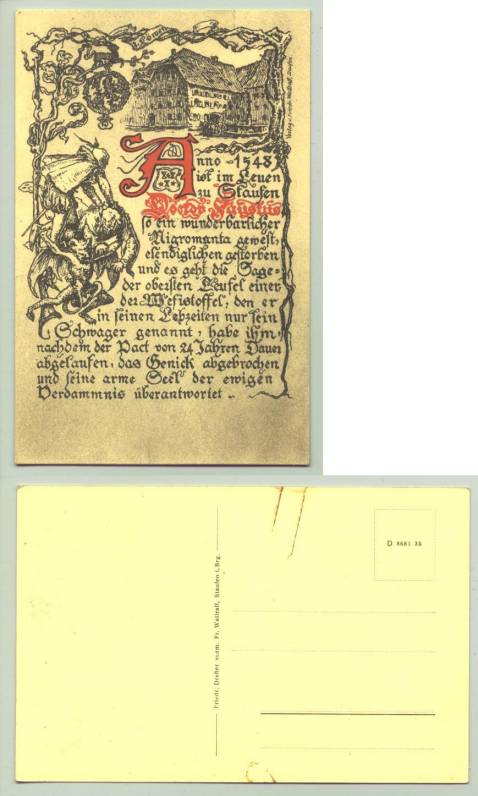 Anno 1548
ist im Leuen
zu Staufen
Doctor Faustus
so ein wunderbarlicher
Nigromanta gewest,
elendiglichen gestorben
und es geht die Sage
der obersten Teufel einer
der Mefistoffel, den er
in seinen Lebzeiten nur sein
Schwager genannt, habe ihm,
nachdem der Pact von 24 Jahren Dauer
abgelaufen, das Genick abgebrochen
und seine arme Seel der ewigen
Verdammnis überantwortet
D 8681 38
Friedr. Dreher vorm. Fr. Wallraff, Staufen i. Brg.